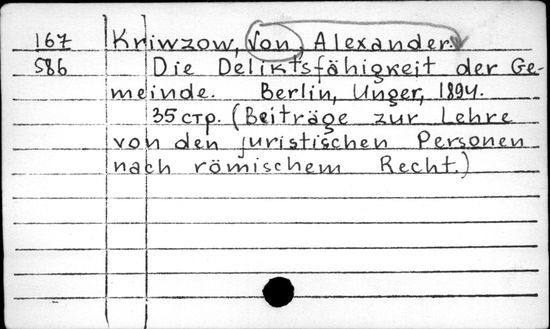 167 Kriwzow, Von, Alexander.
586 Die Deliktsfähigkeit der Ge-
meinde. Berlin, Unger, 1894.
35 стр. (Beiträge zur Lehre
von den juristischen Personen
nach römischem Recht.)